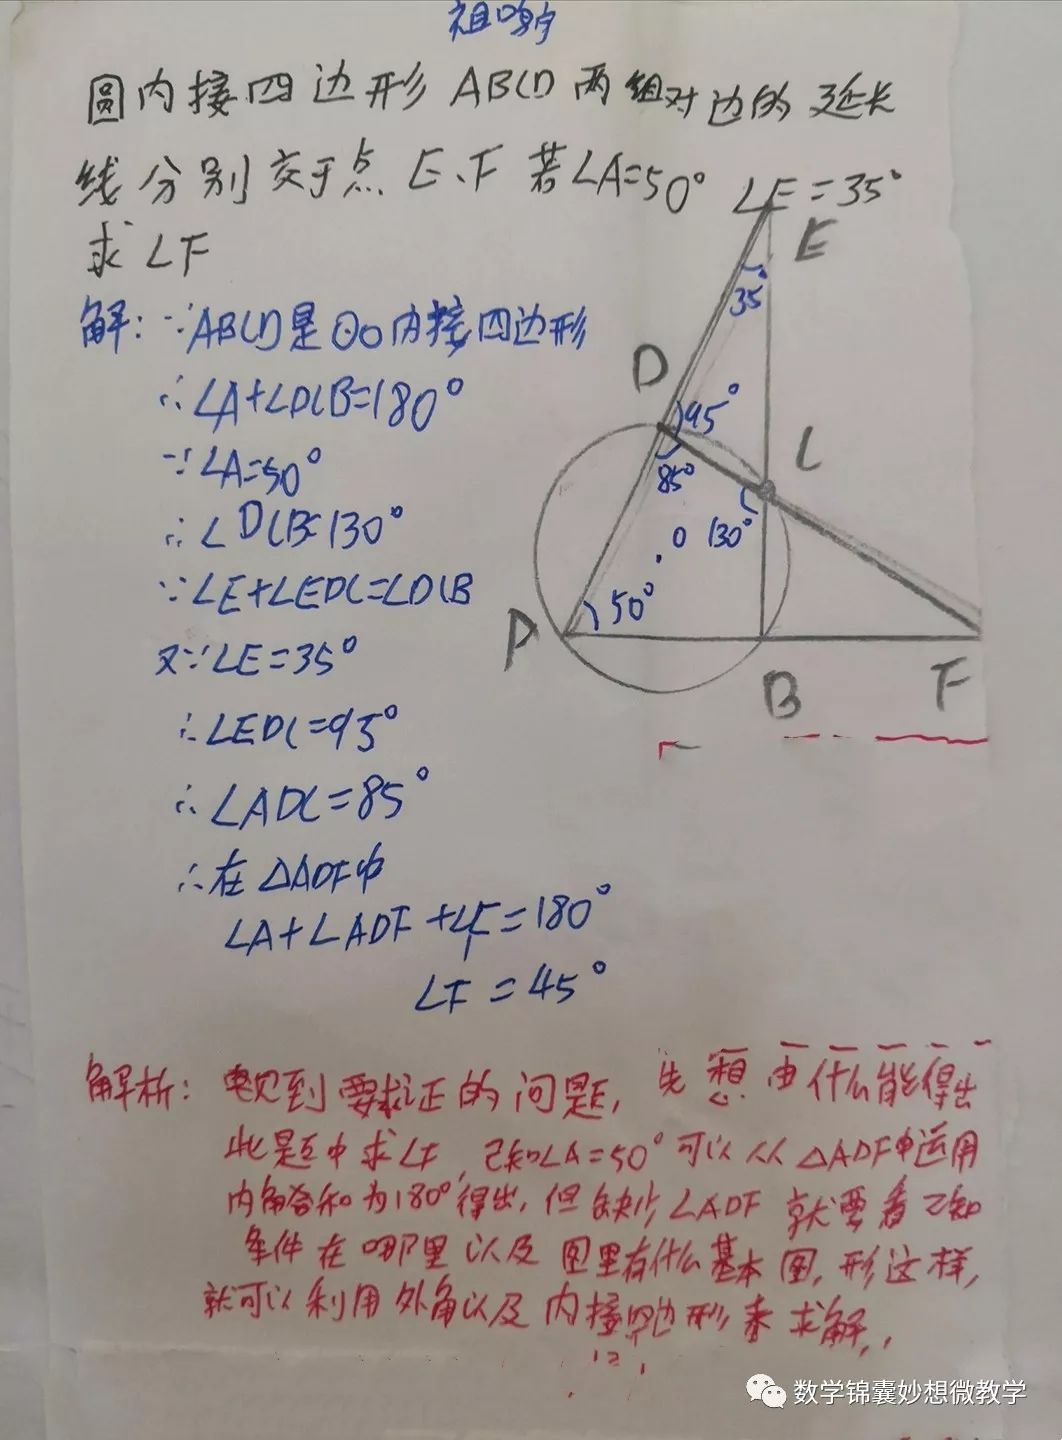 祖鸣宇
圆内接四边形ABCD两组对边的延长
线分别交于点E、F若∠A=50° ∠E=35°
求∠F
解:∵ABCD是⊙O内接四边形
∴∠A+∠DCB=180°
∵∠A=50°
∴∠DCB=130°
∵∠E+∠EDC=∠DCB
又∵∠E=35°
∴∠EDC=95°
∴∠ADC=85°
∴在△ADF中
∠A+∠ADF+∠F=180°
∠F=45°
E
35°
D
95°
C
85°
O 130°
50°
A
B
F
解析:遇到要求证的问题,先想由什么能得出
此题中求∠F,已知∠A=50°可以从△ADF中运用
内角和为180°得出,但缺少∠ADF就要看已知
条件在哪里以及图里有什么基本图,形这样,
就可以利用外角以及内接四边形来求解,
数学锦囊妙想微教学